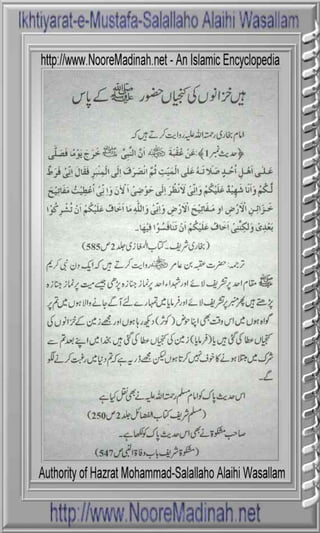 Ikhtiyarat-e-Mustafa-Salallaho Alaihi Wasallam
http://www.NooreMadinah.net - An Islamic Encyclopedia
ہیں خزانوں کی کنجیاں حضور ﷺ کے پاس
امام بخاری رحمۃ اللہ علیہ روایت کرتے ہیں کہ
﴿حدیث نمبر1﴾ عَنْ عُقْبَةَ ﷺ اَنَّ النَّبِیَّ ﷺ خَرَجَ يَوْمًا فَصَلّٰی
عَلٰی اَهْلِ اُحُدٍ صَلَاتَهٗ عَلَی الْمَیِّتِ ثُمَّ انْصَرَفَ اِلَی الْمِنْبَرِ فَقَالَ اِنِّی فَرَطٌ
لَّكُمْ وَاَنَا شَهِيْدٌ عَلَيْكُمْ وَاِنِّی لَاَنْظُرُ اِلٰی حَوْضِیَ الْاٰنَ وَاِنِّی اُعْطِيْتُ مَفَاتِيْحَ
خَزَائِنِ الْاَرْضِ اَوْ مَفَاتِيْحَ الْاَرْضِ وَاِنِّی وَاللّٰهِ مَا اَخَافُ عَلَيْكُمْ اَنْ تُشْرِكُوْا
بَعْدِیْ وَلٰكِنِّیْ اَخَافُ عَلَيْكُمْ اَنْ تَنَافَسُوْا فِيْهَا۔
(بخاری شریف۔ کتاب المغازی جلد 2 ص 585)
ترجمہ: حضرت عقبہ بن عامر روایت کرتے ہیں کہ ایک دن نبی کریم
ﷺ مقام احد پر تشریف لائے اور شہداء احد پر نماز جنازہ پڑھی جیسے میت پر نماز جنازہ
پڑھتے ہیں پھر منبر پر تشریف لائے اور فرمایا میں تمہارے لئے آگے جانے والا ہوں میں تم پر
گواہ ہوں میں اس وقت بھی اپنا حوض (کوثر) دیکھ رہا ہوں اور مجھے زمین کے خزانوں کی
کنجیاں عطا کی گئی ہیں یا (فرمایا) زمین کی کنجیاں عطا کی گئی ہیں بخدا میں اپنے بعد تم سے
شرک میں مبتلا ہونے کا خوف نہیں کرتا ہوں لیکن مجھے ڈر ہے کہ تم دنیا میں رغبت کرنے لگو
گے۔
اس حدیث پاک کو امام مسلم رحمۃ اللہ علیہ نے بھی نقل کیا ہے
(مسلم شریف کتاب الفضائل جلد 2 ص 250)
صاحب مشکوٰۃ نے بھی اس حدیث پاک کو لکھا ہے۔
(مشکوٰۃ شریف باب وفاۃ النبی ص 547)
Authority of Hazrat Mohammad-Salallaho Alaihi Wasallam
http://www.NooreMadinah.net